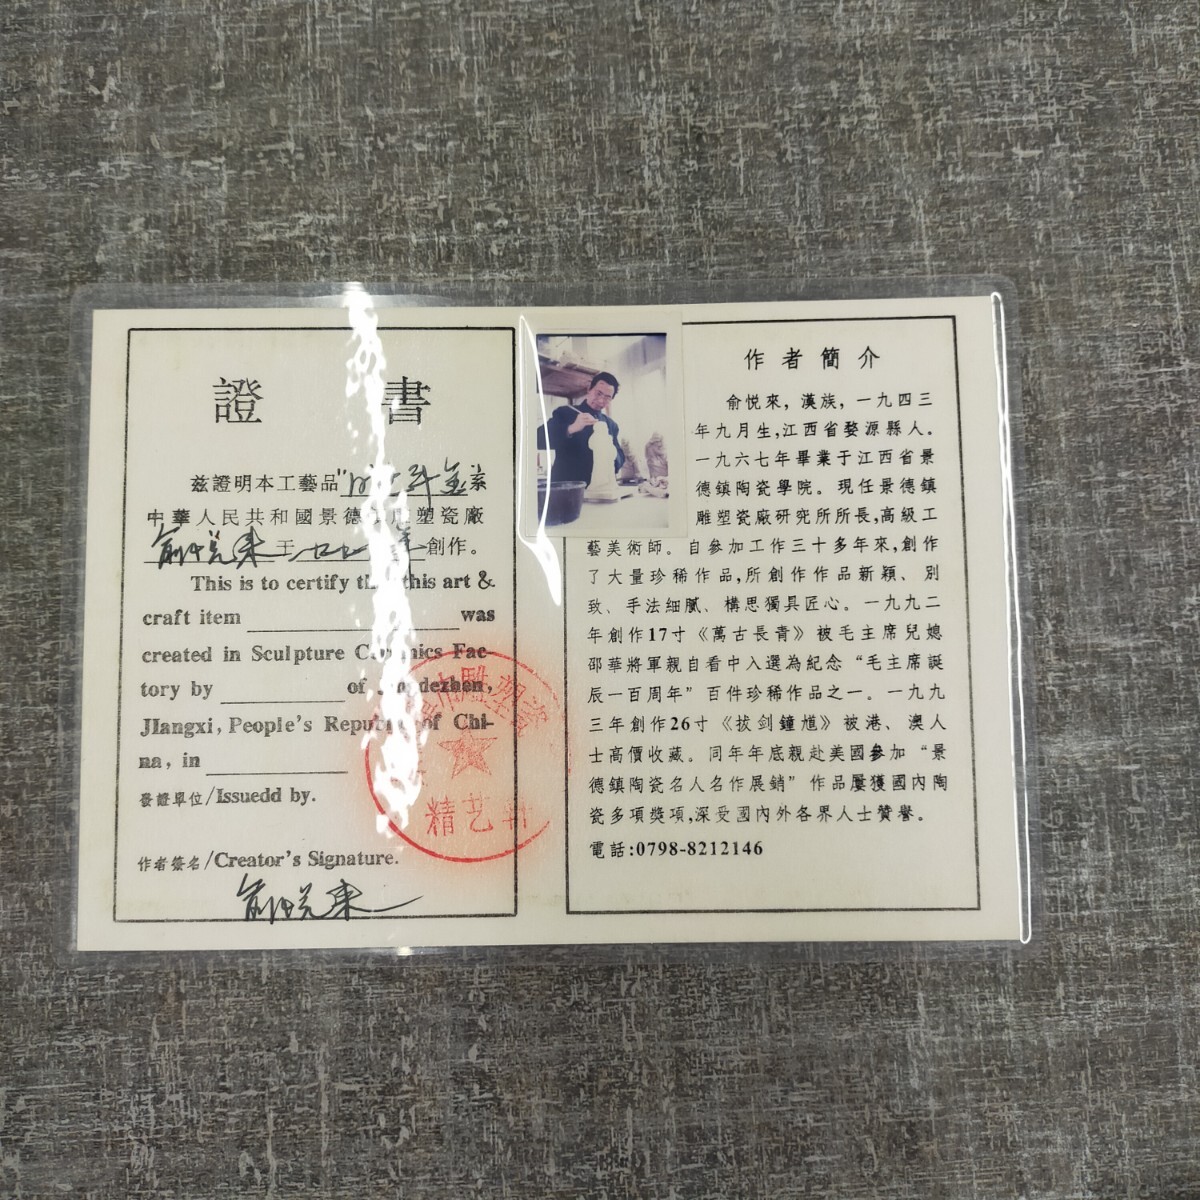 證書
兹證明本工藝品" 系
中華人民共和國景德 塑瓷廠
俞悦來 創作。
This is to certify that this art &
craft item was
created in Sculpture Ceramics Fac-
tory by of Jingdezhen,
JIangxi, People's Republic of Chi-
na, in
發證單位/Issuedd by.
雕塑瓷
精艺
作者签名/Creator's Signature.
俞悦來
作者簡介
俞悦來, 漢族, 一九四三
年九月生,江西省婺源縣人。
一九六七年畢業于江西省景
德鎮陶瓷學院。現任景德鎮
雕塑瓷廠研究所所長,高級工
藝美術師。自參加工作三十多年來,創作
了大量珍稀作品,所創作作品新穎、别
致、手法細膩、構思獨具匠心。一九九二
年創作17寸《萬古長青》被毛主席兒媳
邵華將軍親自看中入選為紀念“毛主席誕
辰一百周年”百件珍稀作品之一。一九九
三年創作26寸《拔剑鐘馗》被港、澳人
士高價收藏。同年年底親赴美國參加“景
德鎮陶瓷名人名作展銷”作品屢獲國内陶
瓷多項獎項,深受國内外各界人士贊譽。
電話:0798-8212146